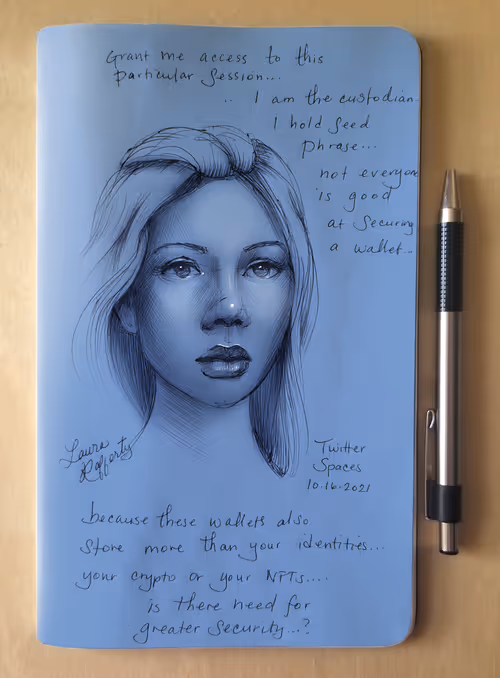 Grant me access to this
particular session...
.. I am the custodian
I hold seed
phrase...
not everyone
is good
at securing
a wallet...
Laura
Rafferty
Twitter
Spaces
10.16.2021
because these wallets also
store more than your identities...
your crypto or your NFTs....
is there need for
greater security...?